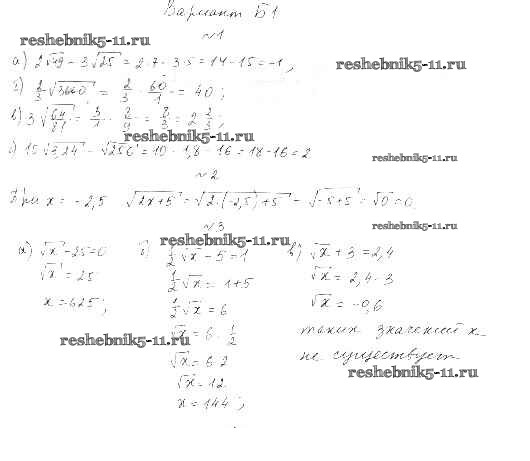 Вариант Б1
№1
reshebnik5-11.ru
а) 2√49 - 3√25 = 2·7 - 3·5 = 14 - 15 = -1;
reshebnik5-11.ru
б) 2/3 √3600 = 2/3 · 60/1 = 40;
в) 3√(64/81) = 3/1 · 8/9 = 8/3 = 2 2/3;
reshebnik5-11.ru
г) 10√3,24 - √256 = 10 · 1,8 - 16 = 18 - 16 = 2
reshebnik5-11.ru
№2
При x = -2,5 √(2x+5) = √(2·(-2,5)+5) = √(-5+5) = √0 = 0.
№3
reshebnik5-11.ru
reshebnik5-11.ru
а) √x - 25 = 0
√x = 25
x = 625;
б) 1/2 √x - 5 = 1
1/2 √x = 1+5
1/2 √x = 6
√x = 6 : 1/2
√x = 6·2
√x = 12
x = 144;
в) √x + 3 = 2,4
√x = 2,4 - 3
√x = -0,6
таких значений x
не существует
reshebnik5-11.ru
reshebnik5-11.ru